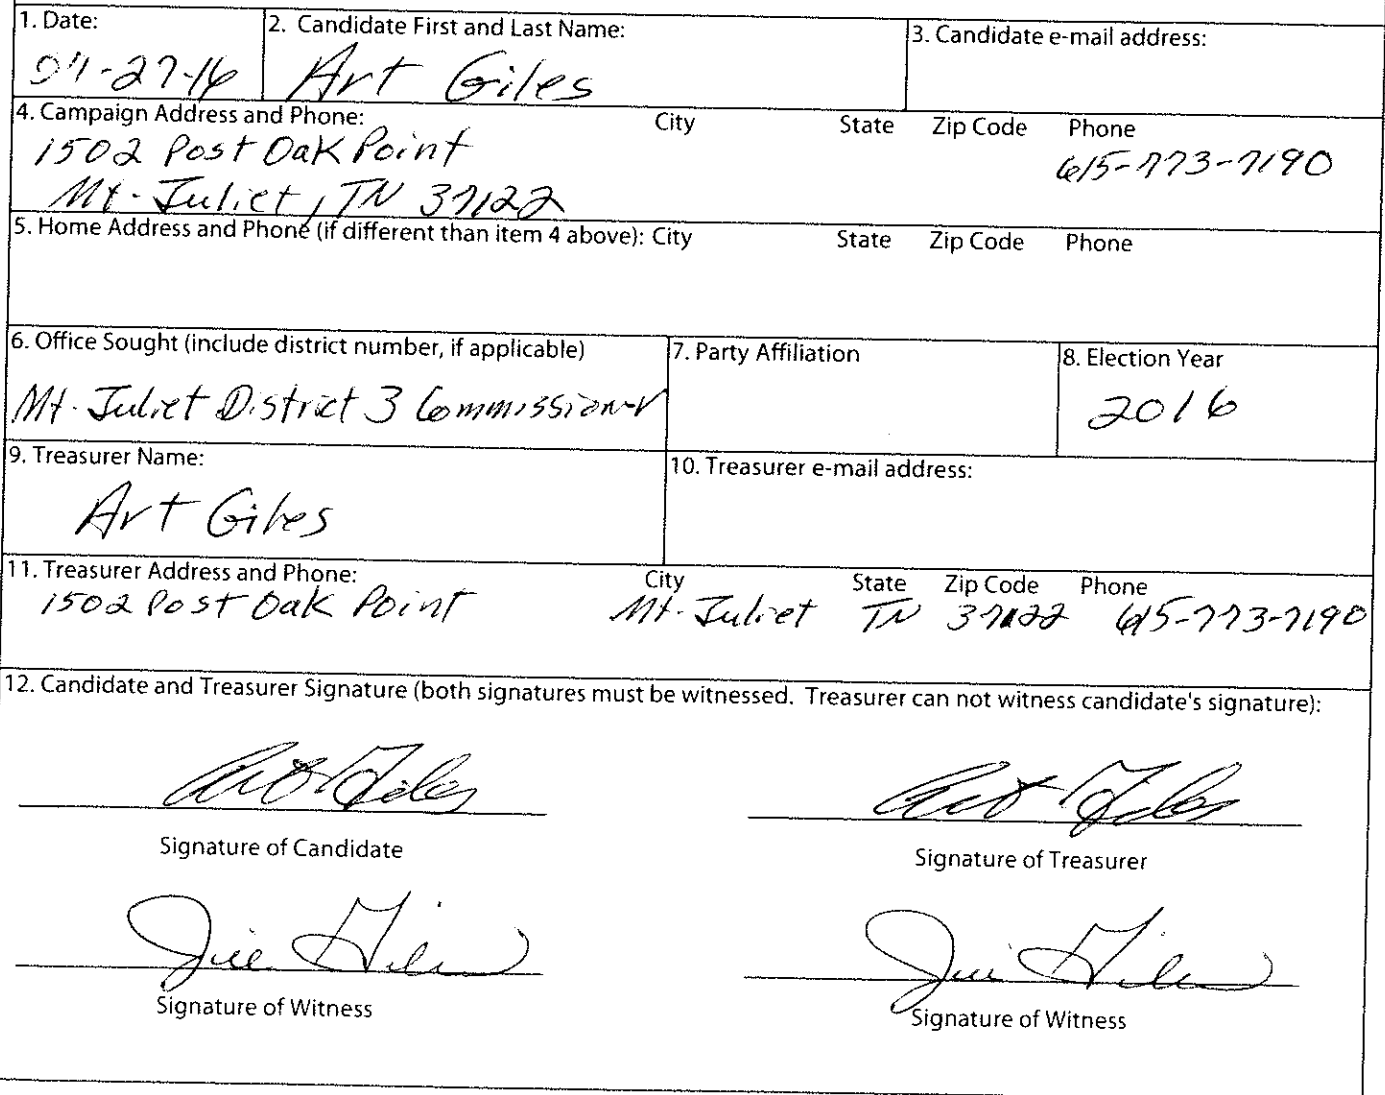 1. Date:
07-27-16
2. Candidate First and Last Name:
Art Giles
3. Candidate e-mail address:
4. Campaign Address and Phone: City State Zip Code Phone
1502 Post Oak Point 615-773-7190
Mt. Juliet, TN 37122
5. Home Address and Phone (if different than item 4 above): City State Zip Code Phone
6. Office Sought (include district number, if applicable)
Mt. Juliet District 3 Commissioner
7. Party Affiliation
8. Election Year
2016
9. Treasurer Name:
Art Giles
10. Treasurer e-mail address:
11. Treasurer Address and Phone: City State Zip Code Phone
1502 Post Oak Point Mt. Juliet TN 37122 615-773-7190
12. Candidate and Treasurer Signature (both signatures must be witnessed. Treasurer can not witness candidate's signature):
Art Giles Art Giles
Signature of Candidate Signature of Treasurer
Giles Giles
Signature of Witness Signature of Witness